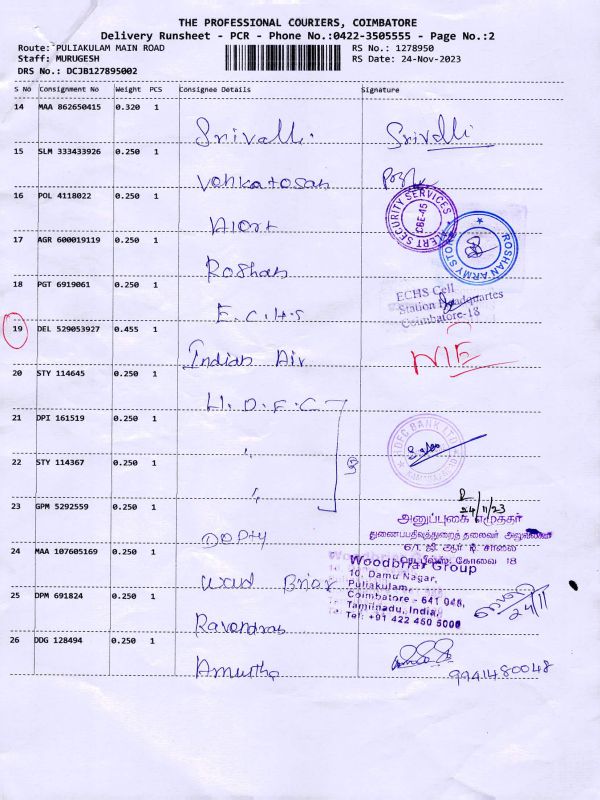 THE PROFESSIONAL COURIERS, COIMBATORE
Delivery Runsheet - PCR - Phone No.:0422-3505555 - Page No.:2
Route: PULIAKULAM MAIN ROAD RS No.: 1278950
Staff: MURUGESH RS Date: 24-Nov-2023
DRS No.: DCJB127895002
S No Consignment No Weight PCS Consignee Details Signature
14 MAA 862650415 0.320 1
Srivalli Srivalli
15 SLM 333433926 0.250 1
Venkatesan
16 POL 4118022 0.250 1
Alert
ALERT SECURITY SERVICES CBE-45
17 AGR 600019119 0.250 1
Roshan
ROSHAN ARMY STORE
18 PGT 6919061 0.250 1
E.C.H.S
ECHS Cell
Station Headquartes
Coimbatore-18
19 DEL 529053927 0.455 1
Indian Air NIE
20 STY 114645 0.250 1
H.D.F.C
21 DPI 161519 0.250 1
"
HDFC BANK LTD
22 STY 114367 0.250 1
" ③
23 GPM 5292559 0.250 1
24/11/23
அனுப்புகை எழுத்தர்
துணைபதிவுத்துறைத் தலைவர் அலுவலகம்
DOPTy
கோவை 18
24 MAA 107605169 0.250 1
Wood Briar
Woodbriar Group
10, Damu Nagar,
Puliakulam,
Coimbatore - 641 045,
Tamilnadu, India.
Tel: +91 422 450 5000
24/11
25 DPM 691824 0.250 1
Ravendran
26 DDG 128494 0.250 1
Amutha
9941480048